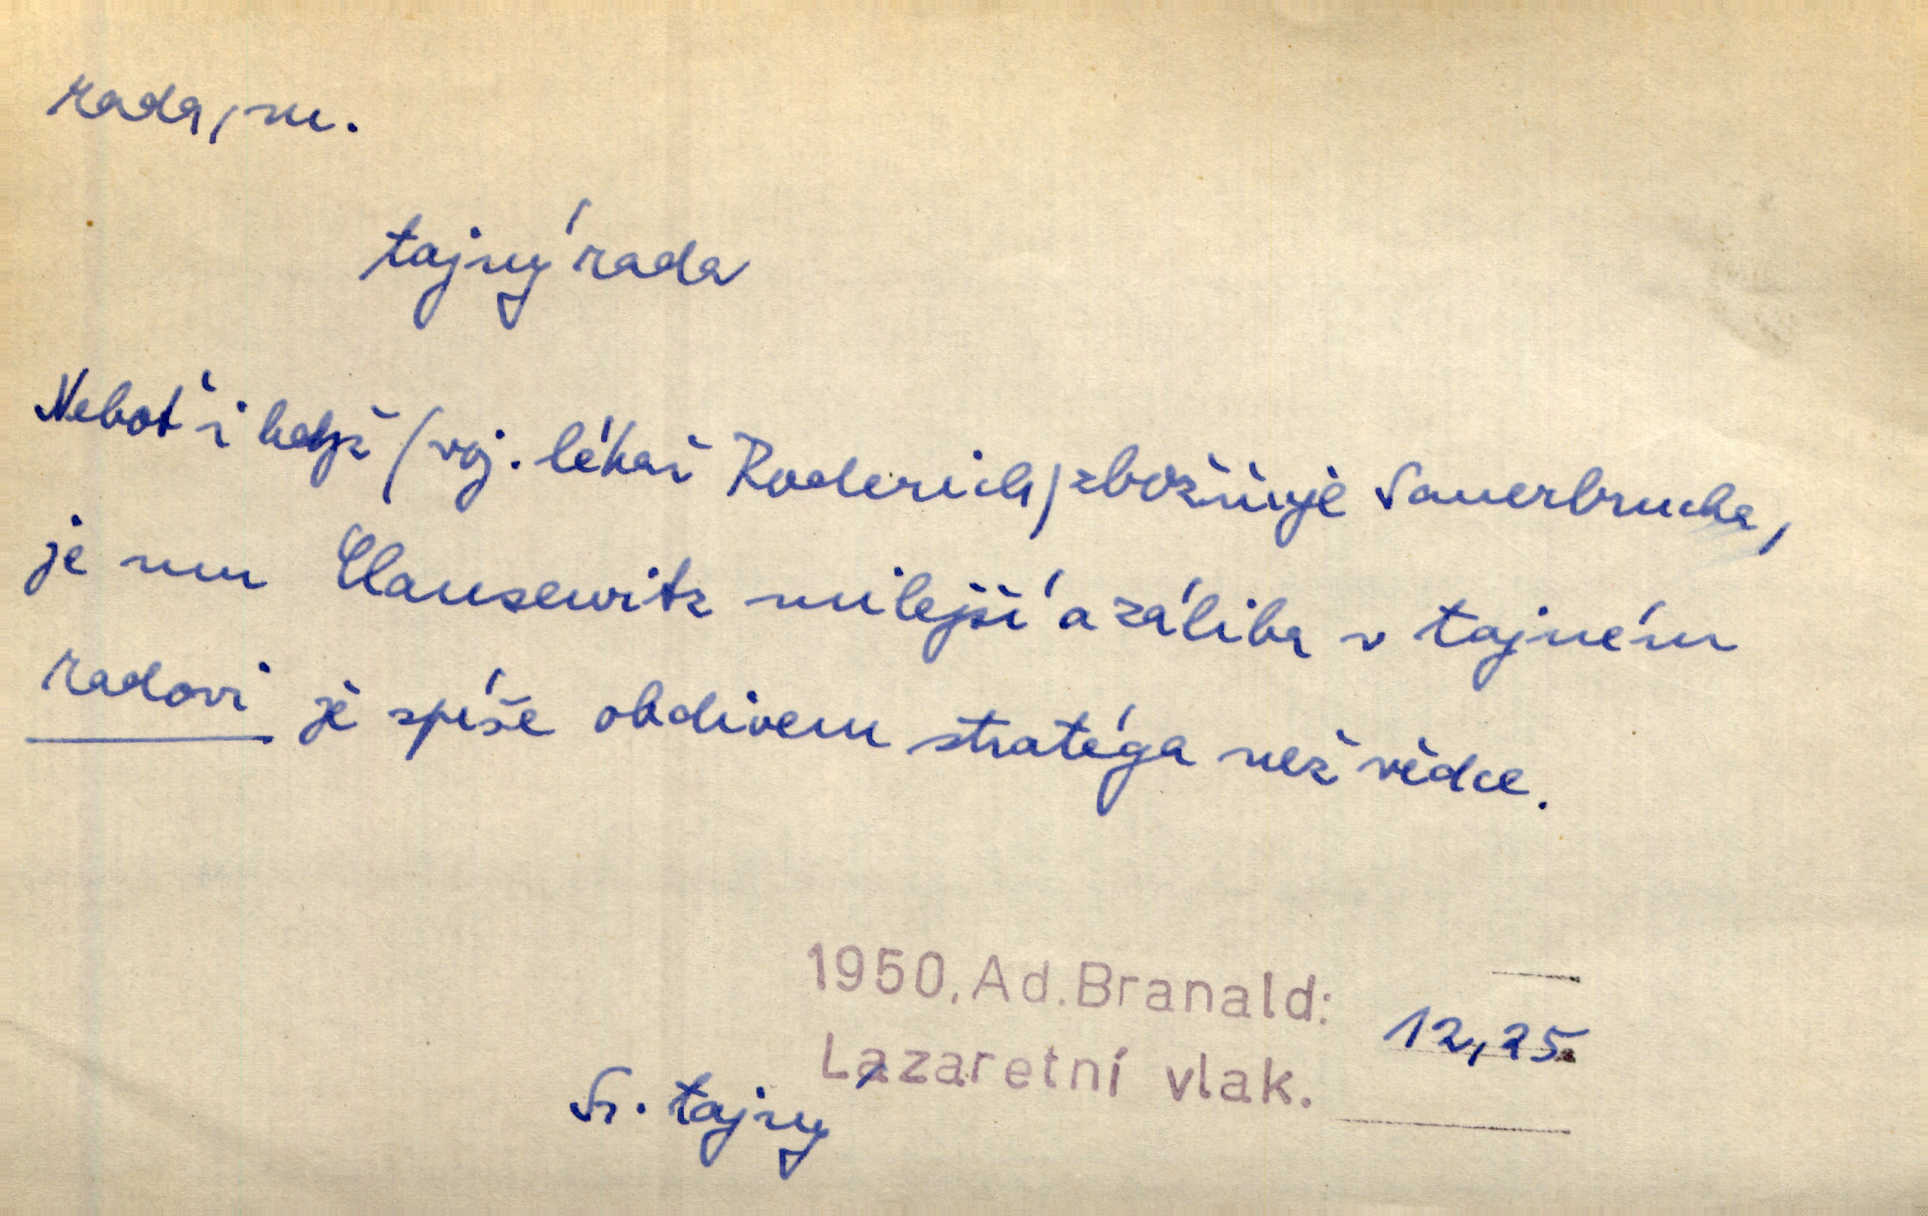 rada, m.
tajný rada
Neboť i když (voj. lékař Roderich) zbožňuje Sauerbrucha,
je mu Clausewitz milejší a záliba v tajném
radovi je spíše obdivem stratéga než vědce.
1950. Ad. Branald:
Lazaretní vlak.
12,25
Sr. tajný